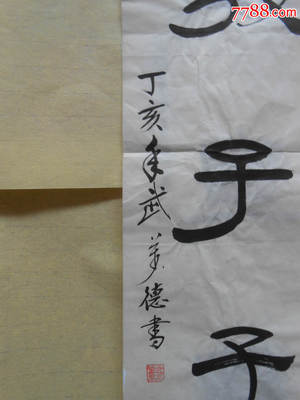 7788.com
子
予
丁亥年武美德書